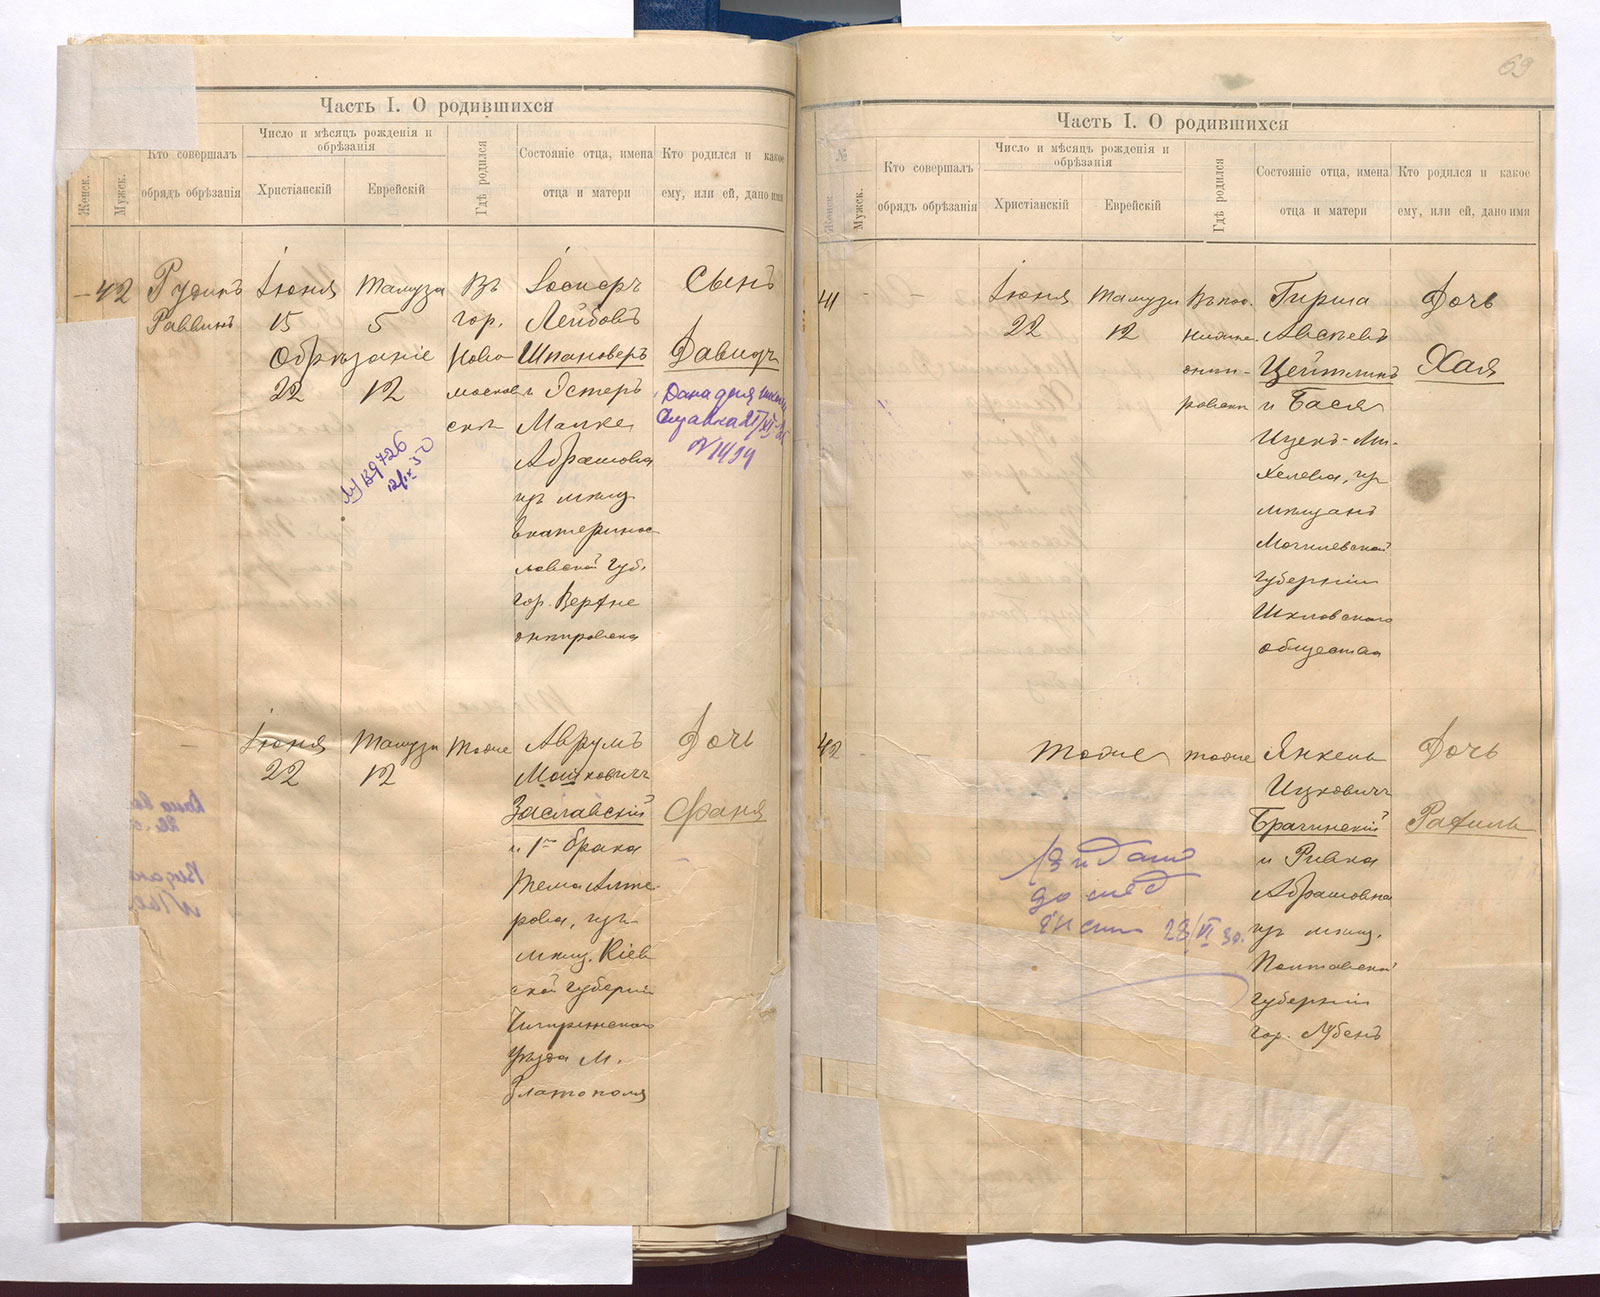 Часть I. О родившихся
Женск.
Мужск.
Кто совершалъ
обрядъ обрѣзанія
Число и мѣсяцъ рожденія и
обрѣзанія
Христіанскій
Еврейскій
Гдѣ родился
Состояніе отца, имена
отца и матери
Кто родился и какое
ему, или ей, дано имя
42
Рудинъ
Раввинъ
Іюня
15
Обрѣзаніе
22
Тамуза
5
12
Въ
гор.
Ново
москов
скѣ
Іосиеръ
Лейбовъ
Шпановеръ
и Эстеръ
Малке
Абрамова
изъ мѣщ.
Екатеринос
лавской губ.
гор. Верхне
днѣпровска
Сынъ
Давидъ
Дана для школы
№ 1414
Іюня
22
Тамуза
12
тоже
Аврумъ
Мошковичъ
Заславскій
и 1го брака
Тема Алте
рова, изъ
мѣщ. Кіев
ской губерніи
Чигиринского
уѣзда м.
Златополя
Дочь
Фаня
69
Часть I. О родившихся
№
Женск.
Мужск.
Кто совершалъ
обрядъ обрѣзанія
Число и мѣсяцъ рожденія и
обрѣзанія
Христіанскій
Еврейскій
Гдѣ родился
Состояніе отца, имена
отца и матери
Кто родился и какое
ему, или ей, дано имя
41
Іюня
22
Тамуза
12
Гирша
Авсѣевъ
Цейтлинъ
и Бася
Ицекъ-Ми-
хелева, изъ
мѣщанъ
Могилевской
губерніи
Шкловского
общества
Дочь
Хая
42
тоже
тоже
Янкель
Ицковичъ
Брагинскій
и Ривка
Абрамовна
изъ мѣщ.
Полтавской
губерніи
гор. Лубенъ
Дочь
Рахиль
Видано
28/VI 30.